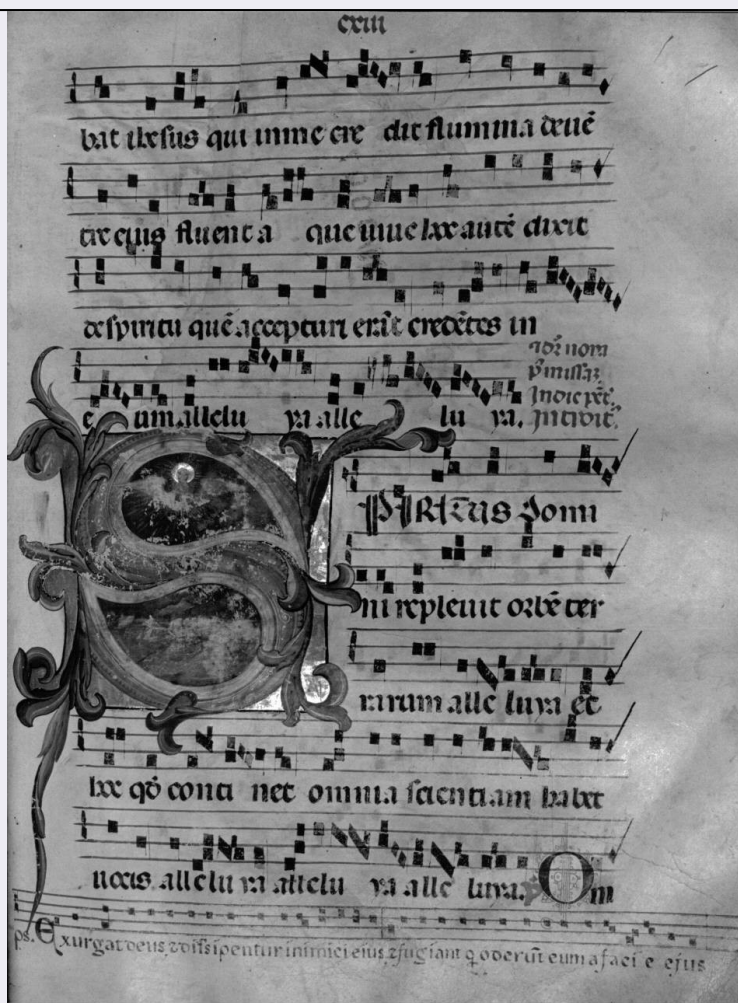 cxiii
bat ihesus qui in me cre dit flumina de ue᷒
tre eius fluent a que uiue hoc autē dixit
de spiritu quē accepturi erāt credētes in
e um allelu ya alle lu ya.
Ad hor nona
In die pēt.
Introit.
SPIRITUS Domi
ni repleuit orbē ter
rarum alle luya et
hoc qd conti net omnia scientiam habet
uocis allelu ya allelu ya alle luya. Om
ps. Exurgat deus et dissipentur inimici eius et fugiant q oderūt eum a faci e ejus